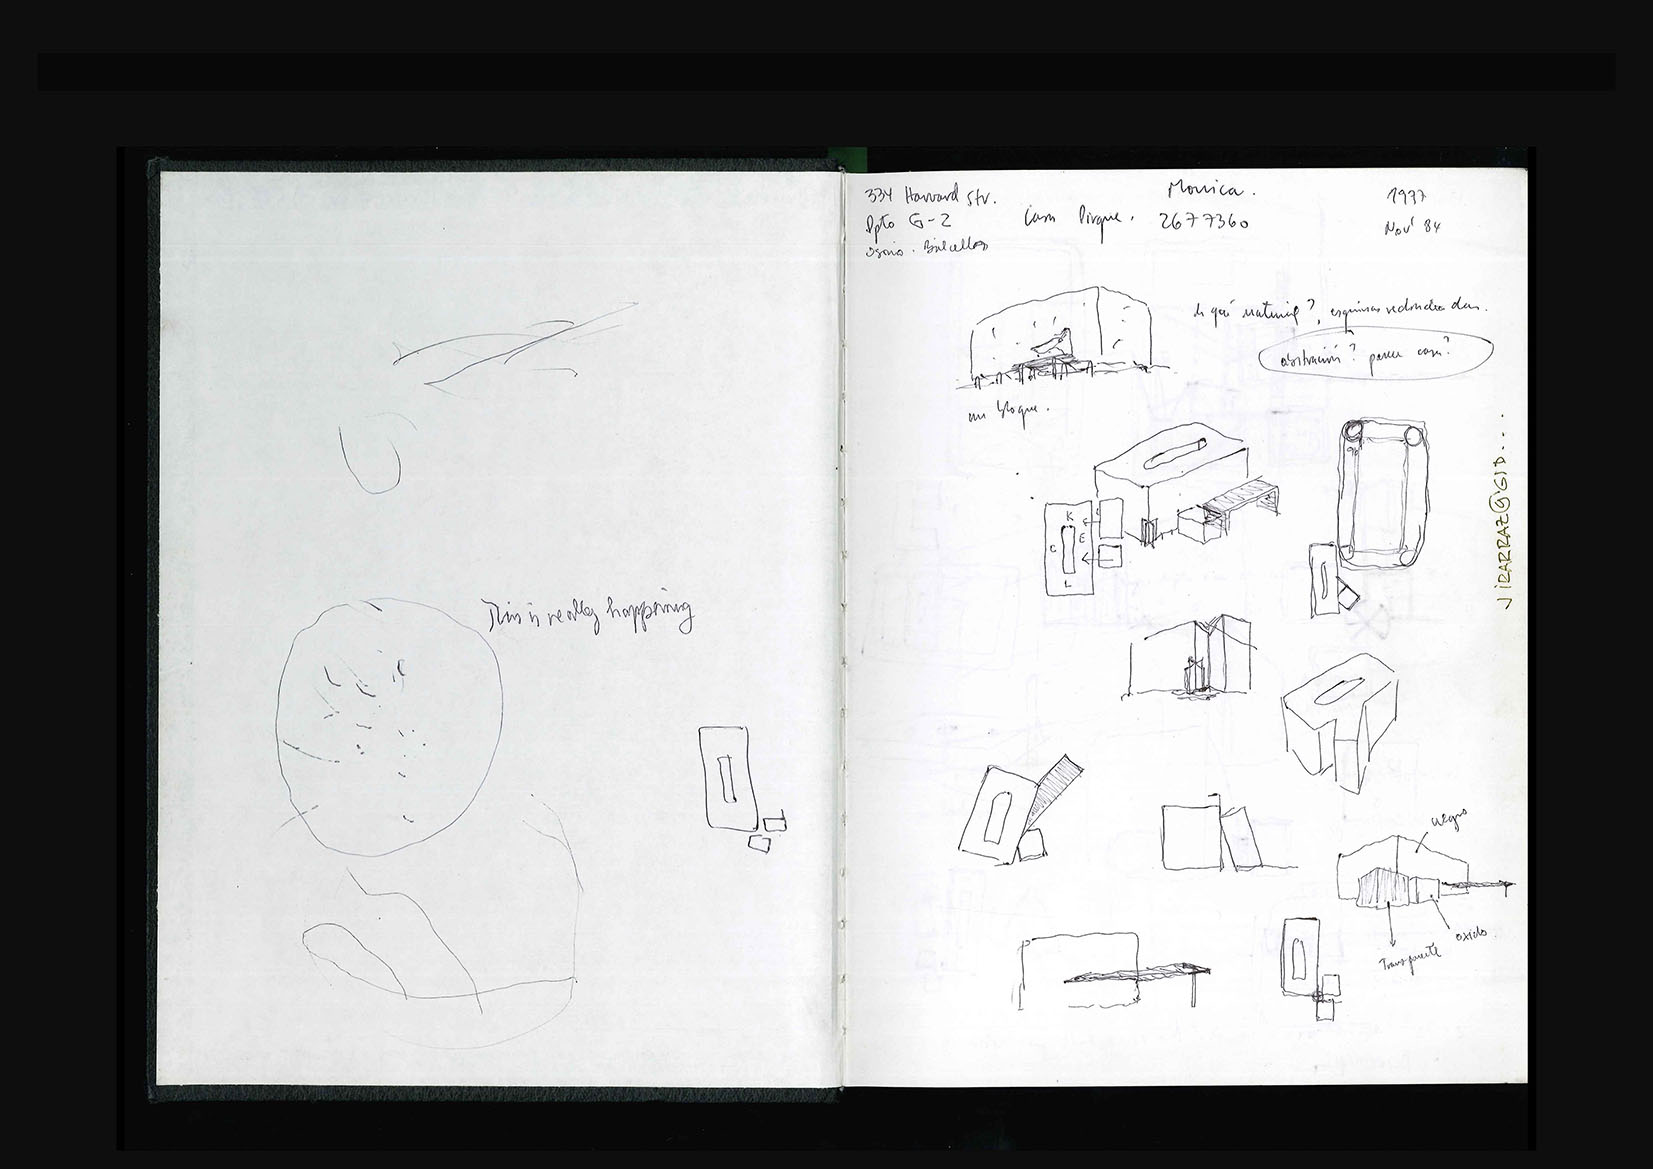 This is really happening
334 Harvard Str.
Dpto G-2
Casa Pirque.
Monica.
2677360
1977
Nov' 84
de qué material?, esquinas redondeadas.
abstracción? parece casa?
un bloque.
K
E
C
L
JIRARRAZ@GSD...
negro
oxido.
Transparente